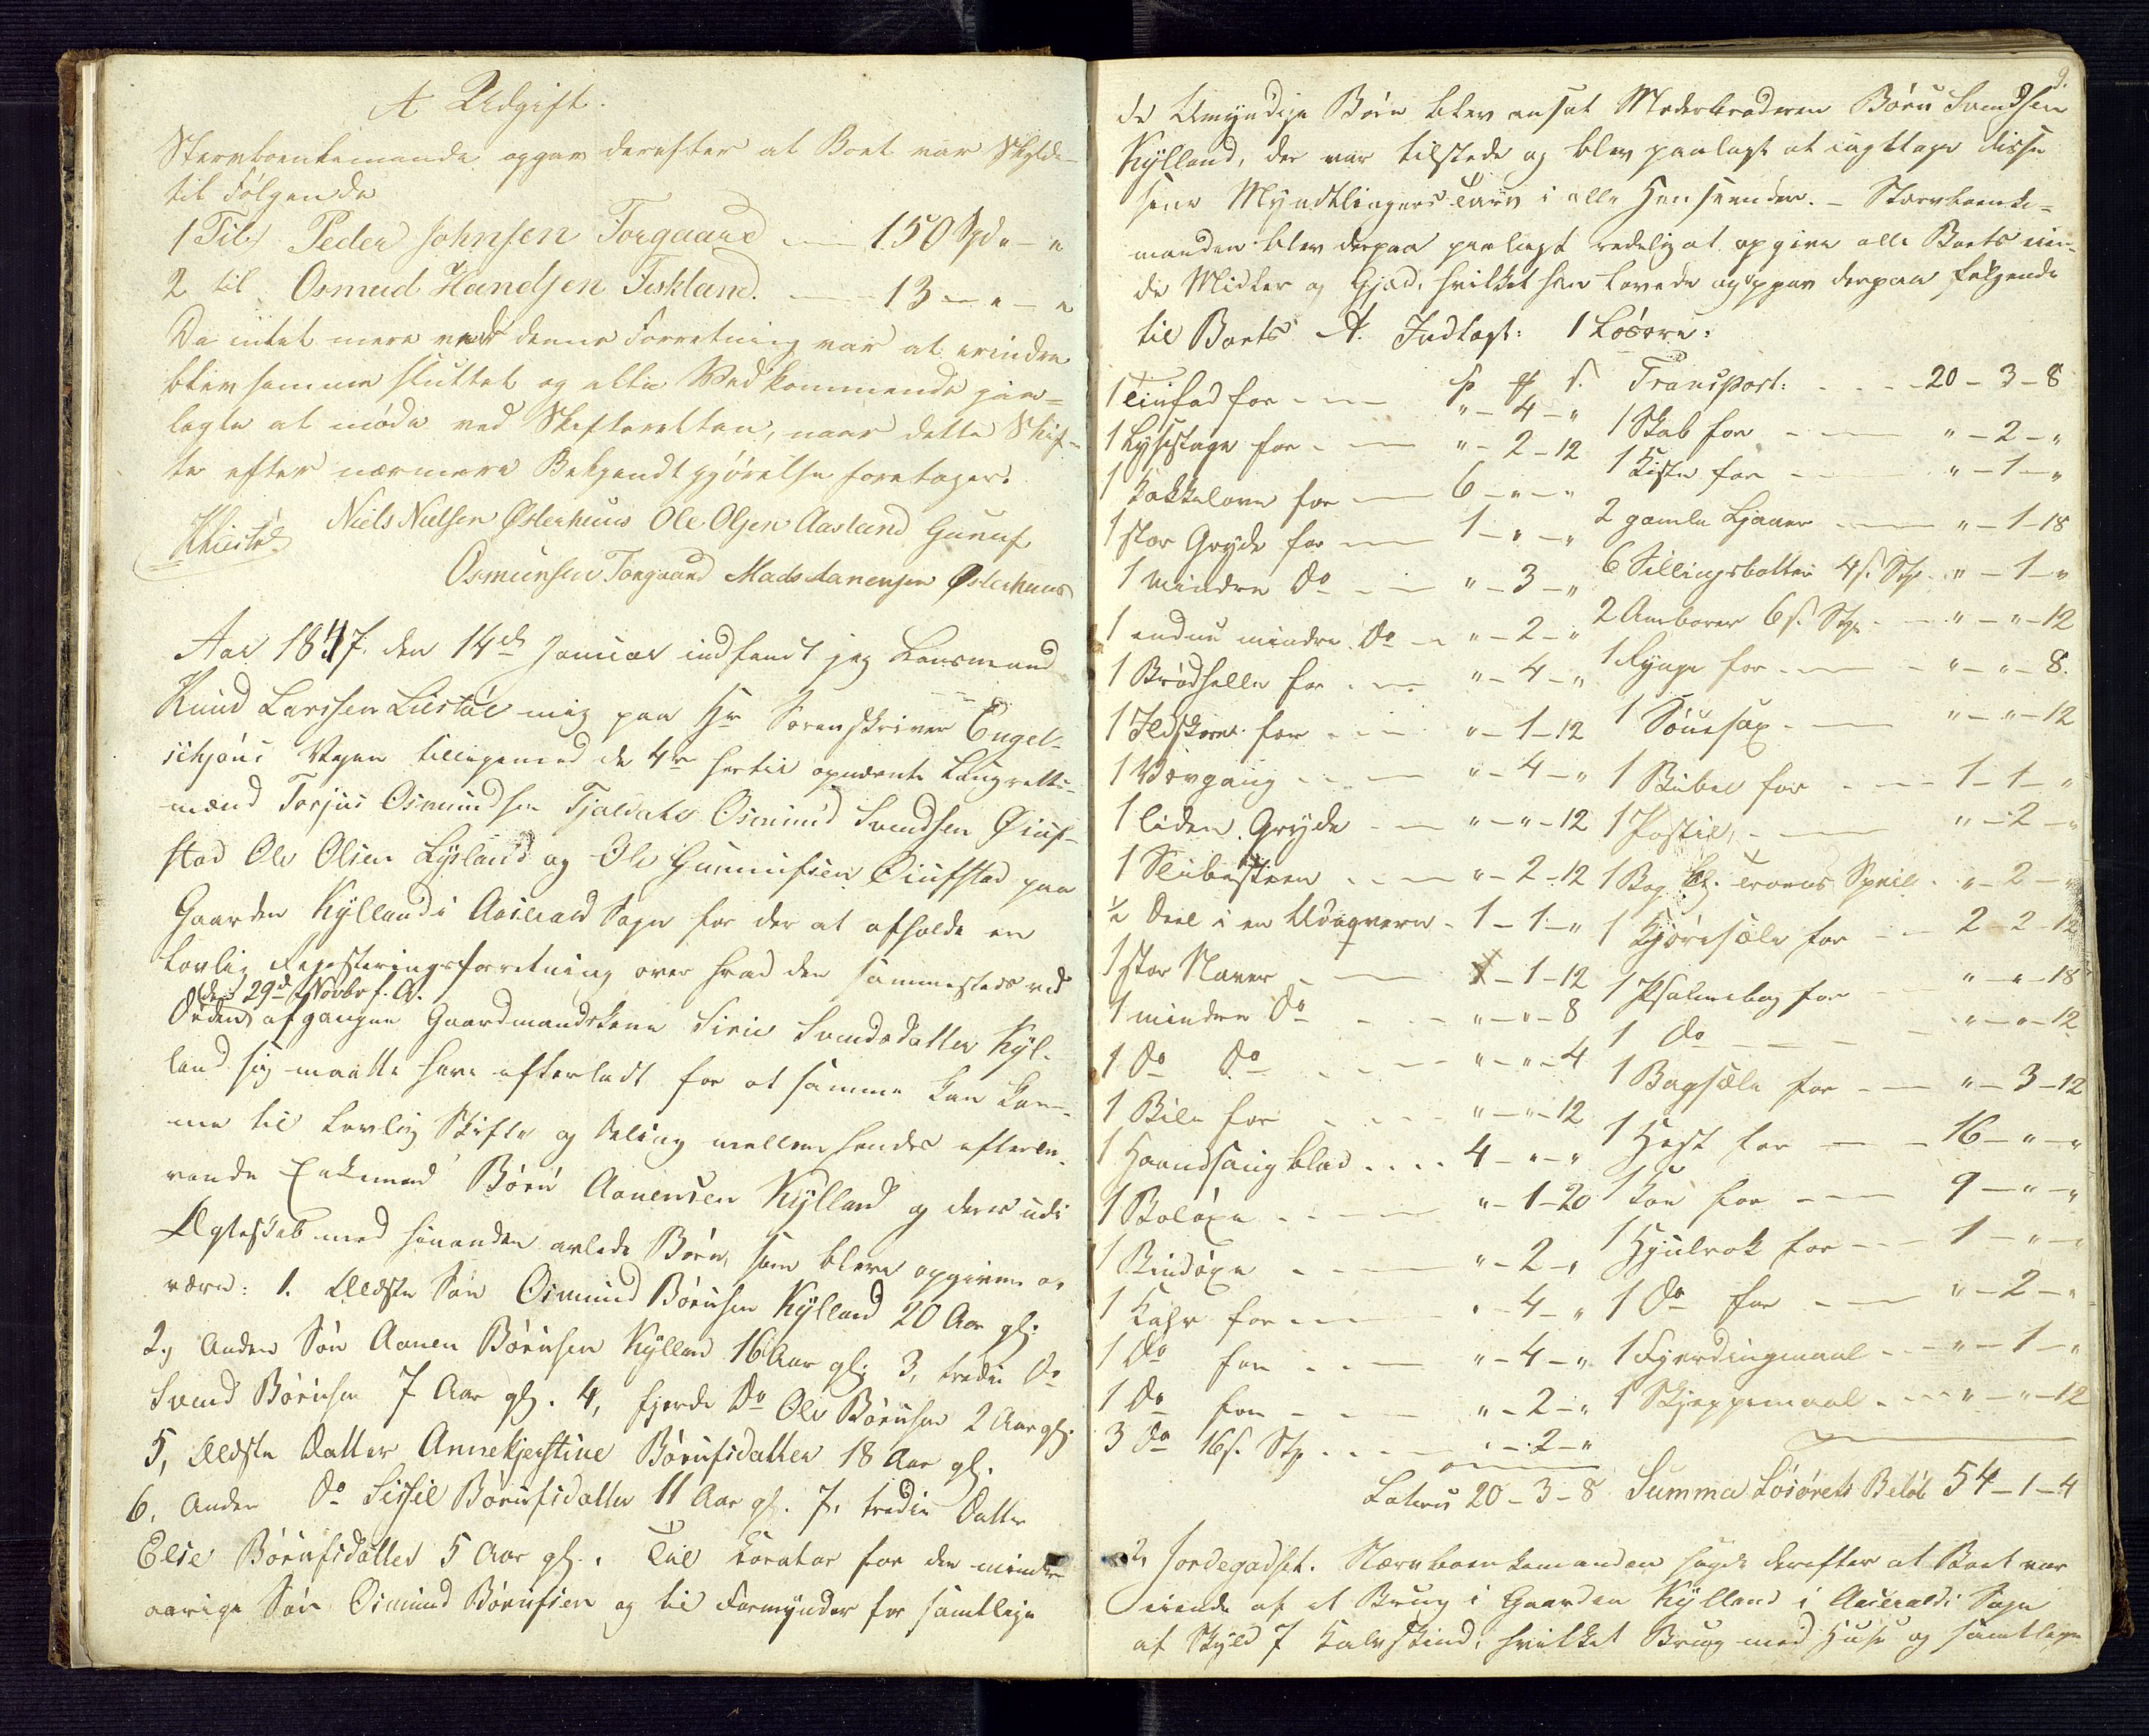 A Udgift.
Stervboenkemanden opgav derefter at Boet var skyldig
til Følgende
1 Til Peder Johnsen Torgaard — 150 Spd " - "
2 til Osmund Handsen Fiskland. — 13 — " - "
Da intet mere ved denne Forretning var at erindre
blev samme sluttet og alle Vedkommende paa-
lagte at møde ved Skifteretten, naar dette Skif-
te efter nærmere Bekjendtgjørelse foretages.
KLiestøl Niels Nielsen Østerhuus Ole Olsen Aasland Gunuf
Osmunsen Torgaard Mads Aanensen Østerhuus
Aar 1847. den 14de Januar indfandt jeg Lensmand
Knud Larssen Liestøl mig paa Hr Sorenskriver Engel-
schjøns Vegne tilligemed de 4re hertil opnævnte Laugrettes-
mænd Torjus Osmundsen Osmund Svendsen Øiuf-
stad Ole Olsen Lysland og Ole Gunnufsen Øiufstad paa
Gaarden Kylland i Aaserald Sogn for der at afholde en
Lovlig Registeringsforretning over hvad den sammesteds ved
den 29de Novbr f. A.
Døden afgangne Gaardmandskone Sirie Svendsdatter Kyl-
land sig maatte have efterladt for at samme kan kom-
me til Lovlig Skifte og Deling mellem hendes efterle-
vende Enkemand Børu Aanensen Kylland og deres udi
Ægteskab med hinanden avlede Børn, som bleve opgivne at
være: 1. Ældste Søn Osmund Børusen Kylland 20 Aar gl:
2, Anden Søn Aanen Børusen Kylland 16 Aar gl: 3, tredie Do
Svend Børusen 7 Aar gl. 4, fjerde Do Ole Børusen 2 Aar gl.
5, Ældste Datter Annekjerstine Børufsdatter 18 Aar gl.
6, Anden Do Sissel Børufsdatter 11 Aar gl. 7, tredie Datter
Else Børufsdatter 5 Aar gl. Til Curator for den minder-
aarige Søn Osmund Børufsen og til Formynder for samtlige
9.
de Umyndige Børn blev ansat Moderbroderen Børu Svendsen
Kylland, der var tilstede og blev paalagt at iagttage disse
sine Myndtlingers Tarv i alle Henseender. - Stervboenke-
manden blev derpaa paalagt redelig at opgive alle Boets eien-
de Midler og Gjæld, hvilket han lovede og opgav derpaa følgende
til Boets A. Indtægt: 1 Løsøre:
1 Tinfad for — " - 4 - "
1 Lysestage for — " - 2 - 12
1 Kakkelovn for — 6 - " - "
1 stor Gryde for — 1 - " - "
1 mindre Do — " - 3 - "
1 endnu mindre Do — " - 2 - "
1 Brødhelle for — " - 4 - "
1 Ildskovel for — " - 1 - 12
1 Vævgang — " - 4 - "
1 liden Gryde — " - " - 12
1 Slibesteen — " - 2 - 12
½ Deel i en Udaqværn - 1 - 1 - "
1 stor Naver — " - 1 - 12
1 mindre Do — " - " - 8
1 Do Do — " - " - 4
1 Bile for — " - " - 12
1 Haandsaug blad .... 4 - " - "
1 Boløxe — " - 1 - 20
1 Bindøxe — " - 2 - "
1 Kahr for — " - 4 - "
1 Do for — " - 4 - "
1 Do for — " - 2 - "
3 Do 16 s. Stp — " - 2 - "
Lateris 20 - 3 - 8
Transport: — 20 - 3 - 8
1 Skab for — " - 2 - "
1 Kiste for — " - 1 - "
2 gamle Ljaaer — " - 1 - 18
6 Sillingsbøtter 4 s. Stp — " - 1 - "
2 Amborer 6 s. Stp — " - " - 12
1 Kynge for — " - " - 8.
1 Souesax — " - " - 12
1 Bibel for — 1 - 1 - "
1 Postil, — " - 2 - "
1 Bog Troens Speil . " - 2 - "
1 Kjøresæle for — 2 - 2 - 12
1 Psalmebog for — " - " - 18
1 Do — " - " - 12
1 Bagsæle for — " - 3 - 12
1 Hest for — 16 - " - "
1 Koe for — 9 - " - "
1 Hjulrok for — 1 - " - "
1 Do for — " - 2 - "
1 Fjerdingmaal — " - 1 - "
1 Skjeppemaal — " - " - 12
Summa Løsørets Beløb 54 - 1 - 4
2, Jordegodset. Stervboenkemanden sagde derefter at Boet var
eiende af et Brug i Gaarden Kylland i Aaseralds Sogn
af Skyld 7 Kalvskind, hvilket Brug med Huse og samtlige